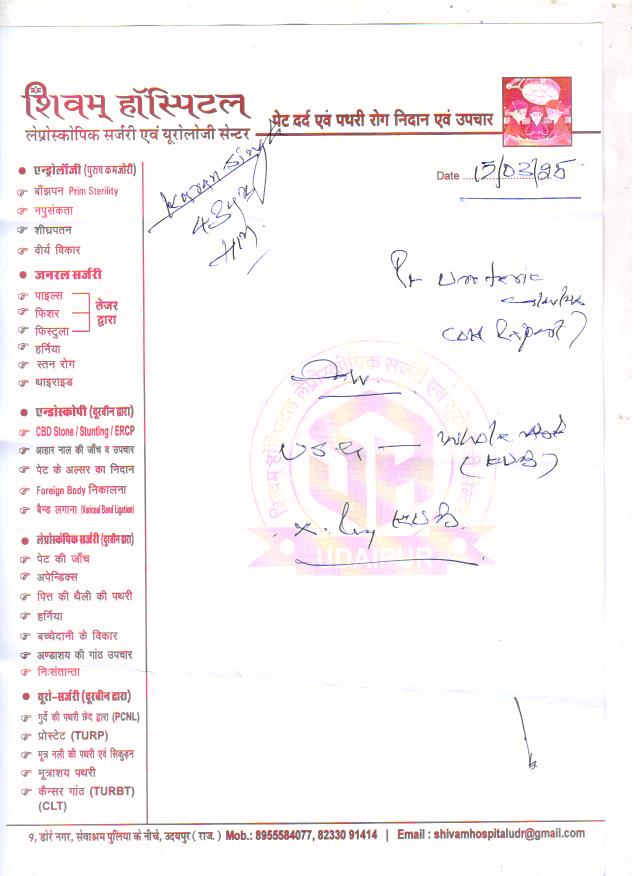 शिवम् हॉस्पिटल
लेप्रोस्कोपिक सर्जरी एवं यूरोलोजी सेन्टर
पेट दर्द एवं पथरी रोग निदान एवं उपचार
Date 15/03/25
Karan Singh
एन्ड्रोलॉजी (पुरुष कमजोरी)
बाँझपन Prim Sterility
नपुसंकता
शीघ्रपतन
वीर्य विकार
जनरल सर्जरी
पाइल्स
फिशर
फिस्टुला
लेजर द्वारा
हर्निया
स्तन रोग
थाइराइड
एन्डोस्कोपी (दूरबीन द्वारा)
CBD Stone / Stunting / ERCP
आहार नाल की जाँच व उपचार
पेट के अल्सर का निदान
Foreign Body निकालना
बैन्ड लगाना (Variceal Band Ligation)
लेप्रोस्कोपिक सर्जरी (दूरबीन द्वारा)
पेट की जाँच
अपेन्डिक्स
पित्त की थैली की पथरी
हर्निया
बच्चेदानी के विकार
अण्डाशय की गांठ उपचार
निःसंतानता
यूरो-सर्जरी (दूरबीन द्वारा)
गुर्दे की पथरी छेद द्वारा (PCNL)
प्रोस्टेट (TURP)
मूत्र नली की पथरी एवं सिकुड़न
मूत्राशय पथरी
कैन्सर गांठ (TURBT)
(CLT)
ureteric
Report)
USG — whole
(KUB)
X-Ray KUB
UDAIPUR
9, डोरे नगर, सेवाश्रम पुलिया के नीचे, उदयपुर ( राज. ) Mob.: 8955584077, 82330 91414 | Email : shivamhospitaludr@gmail.com